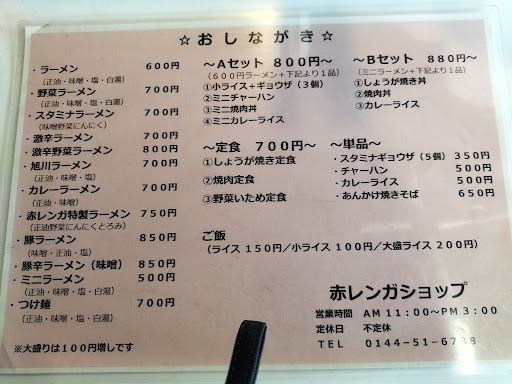 ☆おしながき☆
・ラーメン 600円
(正油・味噌・塩・白湯)
・野菜ラーメン 700円
(正油・味噌・塩・白湯)
・スタミナラーメン 700円
(味噌野菜にんにく)
・激辛ラーメン 700円
・激辛野菜ラーメン 800円
・旭川ラーメン 700円
(正油・味噌・塩)
・カレーラーメン 700円
(正油・味噌)
・赤レンガ特製ラーメン 750円
(正油野菜にんにくとろみ)
・豚ラーメン 850円
(味噌・正油・塩)
・豚辛ラーメン(味噌) 850円
・ミニラーメン 500円
(正油・味噌・塩・白湯)
・つけ麺 700円
(正油・味噌・塩・白湯)
※大盛りは100円増しです
～Aセット 800円～
(600円ラーメン+下記より1品)
①小ライス+ギョウザ(3個)
②ミニチャーハン
③ミニ焼肉丼
④ミニカレーライス
～Bセット 880円～
(ミニラーメン+下記より1品)
①しょうが焼き丼
②焼肉丼
③カレーライス
～定食 700円～
①しょうが焼き定食
②焼肉定食
③野菜いため定食
～単品～
・スタミナギョウザ(5個) 350円
・チャーハン 500円
・カレーライス 500円
・あんかけ焼きそば 650円
ご飯
(ライス150円/小ライス100円/大盛ライス200円)
赤レンガショップ
営業時間 AM11:00～PM3:00
定休日 不定休
TEL 0144-51-6738